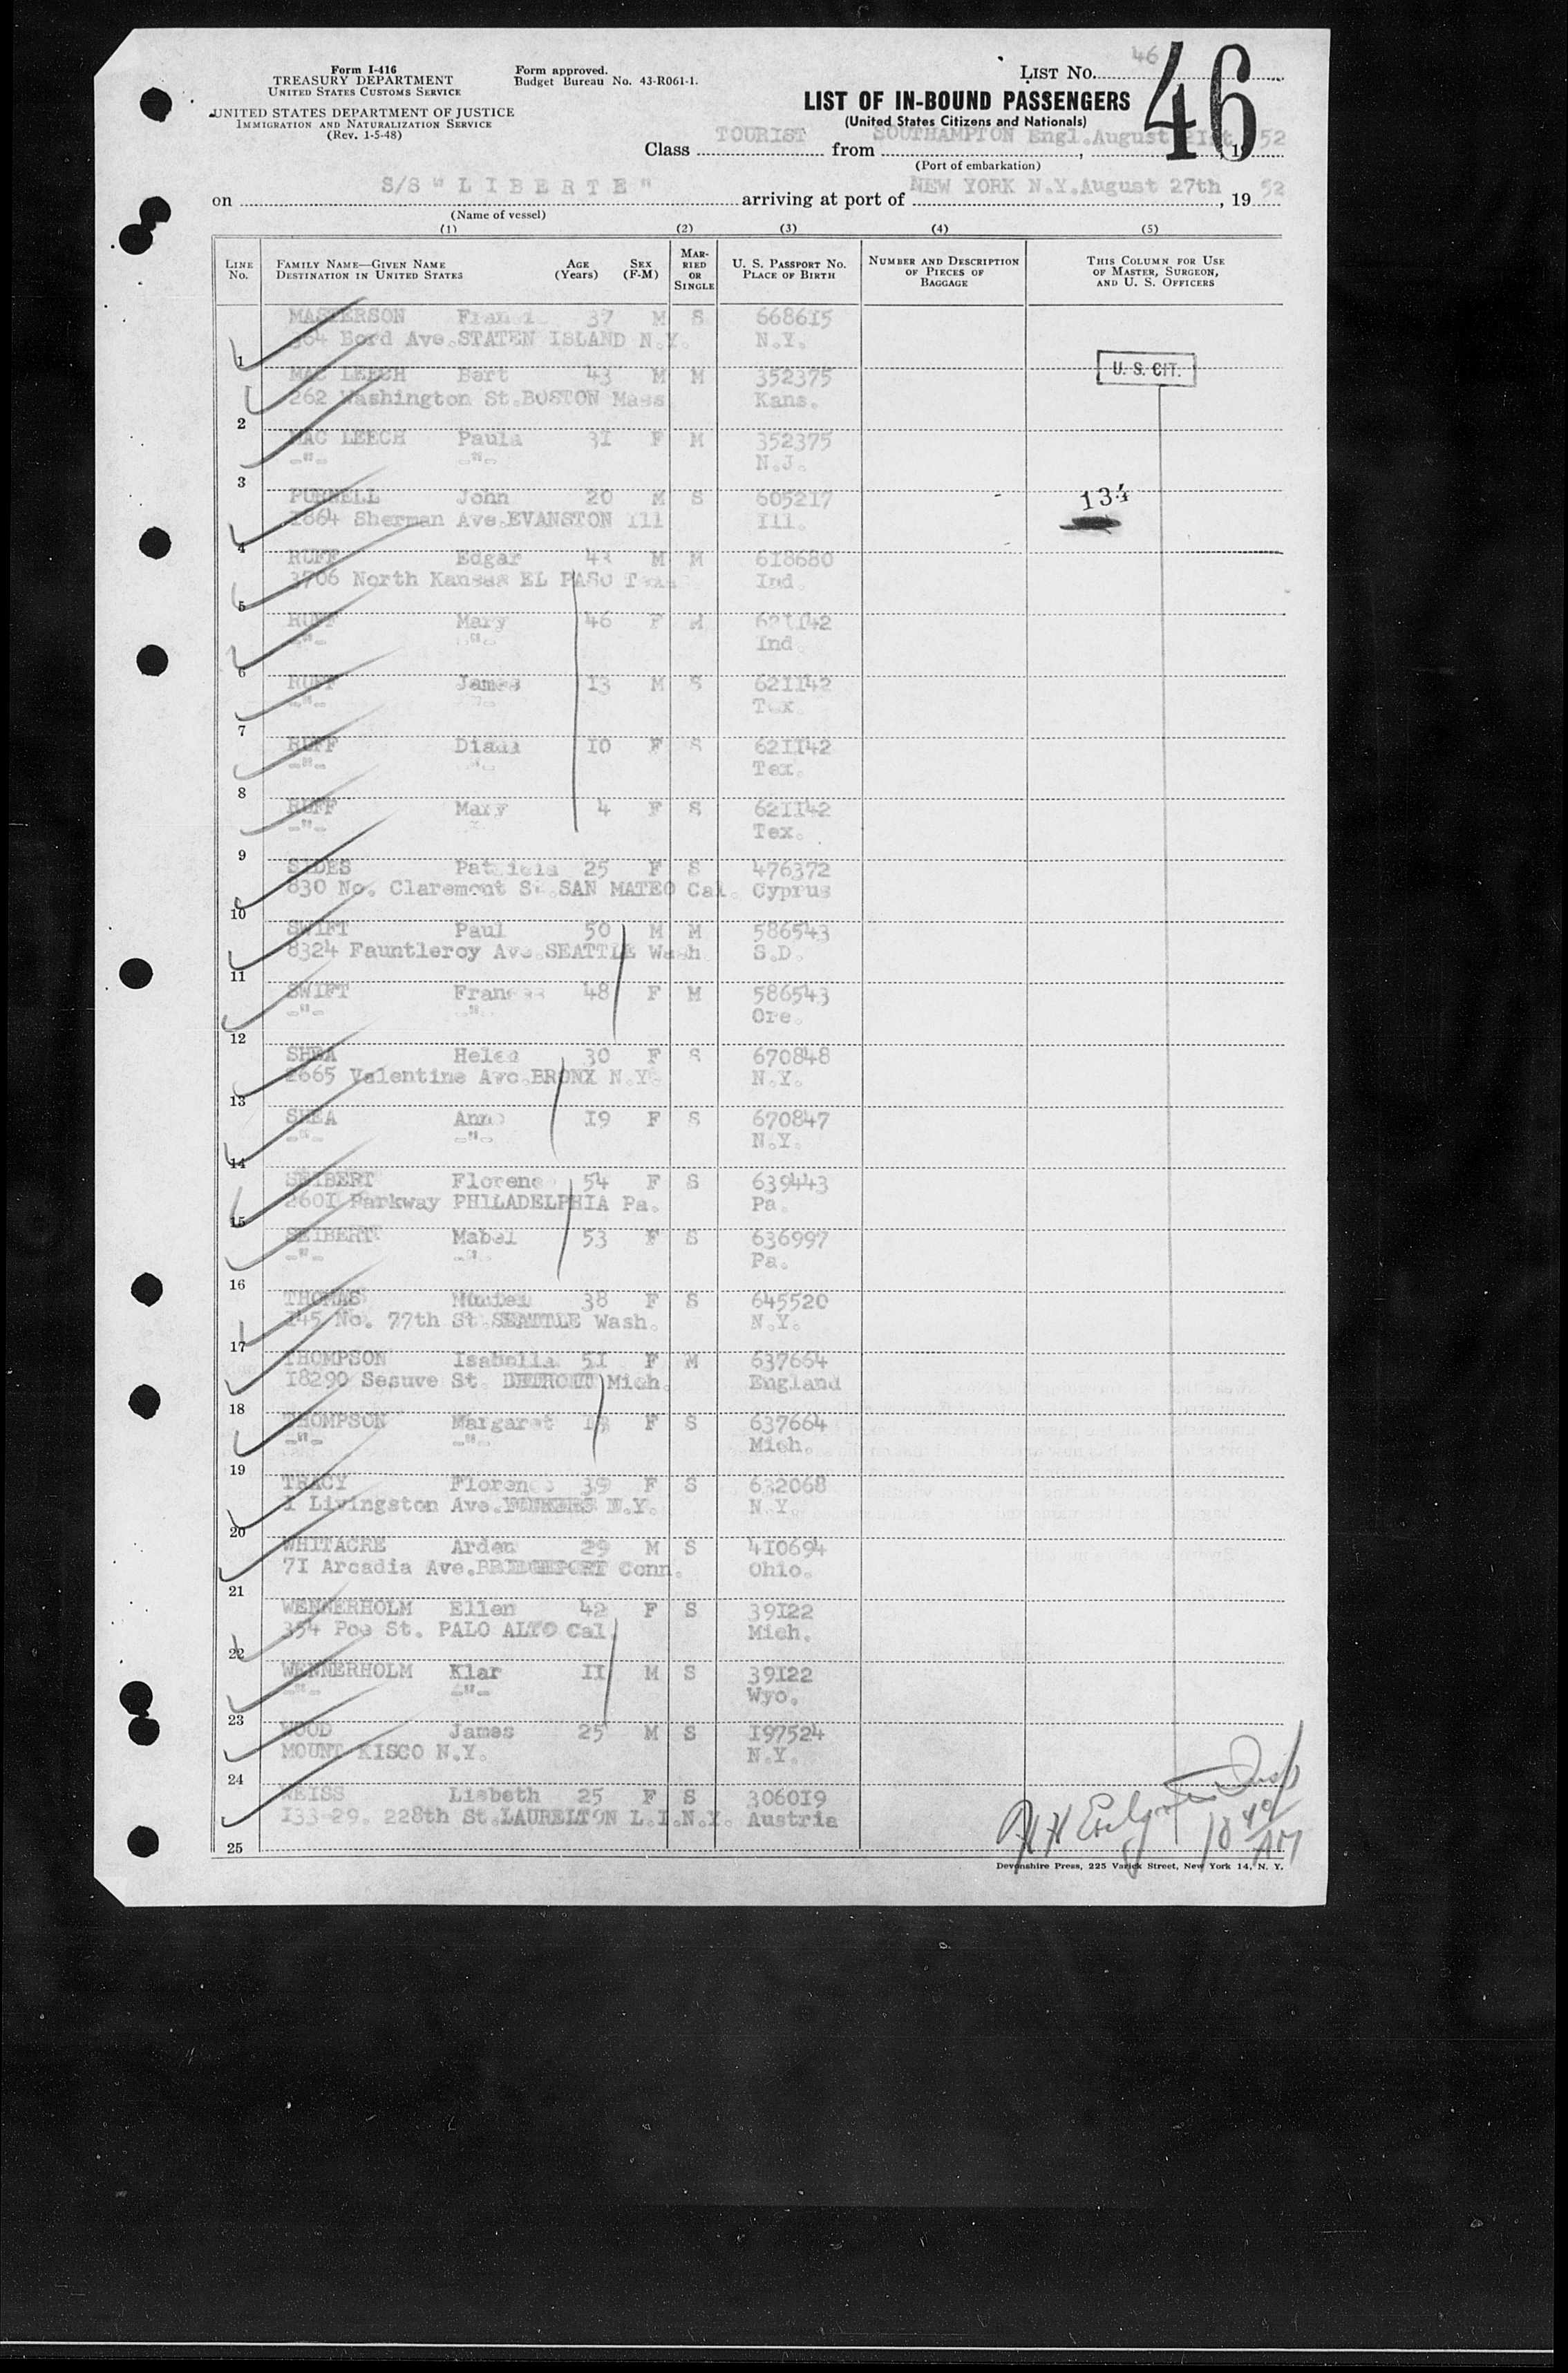 Form I-416
TREASURY DEPARTMENT
UNITED STATES CUSTOMS SERVICE
UNITED STATES DEPARTMENT OF JUSTICE
IMMIGRATION AND NATURALIZATION SERVICE
(Rev. 1-5-48)
Form approved.
Budget Bureau No. 43-R061-1.
LIST No. 46
46
LIST OF IN-BOUND PASSENGERS
(United States Citizens and Nationals)
Class TOURIST from SOUTHAMPTON Engl. August 2Ist, 1952
(Port of embarkation)
on S/S "LIBERTE" arriving at port of NEW YORK N.Y. August 27th, 1952
(Name of vessel)
(1) (2) (3) (4) (5)
LINE No. FAMILY NAME—GIVEN NAME DESTINATION IN UNITED STATES AGE (Years) SEX (F-M) MARRIED OR SINGLE U. S. PASSPORT No. PLACE OF BIRTH NUMBER AND DESCRIPTION OF PIECES OF BAGGAGE THIS COLUMN FOR USE OF MASTER, SURGEON, AND U. S. OFFICERS
MASTERSON 37 M S 6686I5
Bord Ave. STATEN ISLAND N.Y. N.Y.
1
U. S. CIT.
MAC LEECH Bart 43 M M 352375
262 Washington St. BOSTON Mass Kans.
2
MAC LEECH Paula 3I F M 352375
-"- -"- N.J.
3
PURNELL John 20 M S 6052I7
I864 Sherman Ave. EVANSTON Ill Ill.
134
4
RUFF Edgar M M 6I8680
3706 North Kansas EL PASO Ind.
5
RUFF Mary 46 F M 62II42
-"- -"- Ind
6
RUFF James I3 M S 62II42
-"- Tex.
7
RUFF Diana I0 F S 62II42
-"- Tex.
8
RUFF Mary 4 F S 62II42
-"- Tex.
9
SIDES Patricia 25 F S 476372
830 No. Claremont St. SAN MATEO Cal. Cyprus
10
SWIFT Paul 50 M M 586543
8324 Fauntleroy Ave. SEATTLE Wash S.D.
11
SWIFT Frances 48 F M 586543
-"- -"- Ore.
12
SHEA Helen 30 F S 670848
2665 Valentine Ave. BRONX N.Y. N.Y.
13
SHEA Anne I9 F S 670847
-"- -"- N.Y.
14
SEIBERT Florence 54 F S 639443
260I Parkway PHILADELPHIA Pa. Pa.
15
SEIBERT Mabel 53 F S 636997
-"- -"- Pa.
16
THOMAS 38 F S 645520
I45 No. 77th St. SEATTLE Wash. N.Y.
17
THOMPSON Isabella 5I F M 637664
I8290 Sesuve St. DETROIT Mich. England
18
THOMPSON Margaret F S 637664
-"- -"- Mich.
19
TRACY Florence 39 F S 632068
I Livingston Ave. YONKERS N.Y. N.Y.
20
WHITACRE Arden 29 M S 4I0694
7I Arcadia Ave. BRIDGEPORT Conn. Ohio.
21
WENNERHOLM Ellen 42 F S 39I22
354 Poe St. PALO ALTO Cal. Mich.
22
WENNERHOLM Klar II M S 39I22
-"- -"- Wyo.
23
WOOD James 25 M S I97524
MOUNT KISCO N.Y. N.Y.
24
WEISS Lisbeth 25 F S 3060I9
I33-29. 228th St. LAURELTON L.I.N.Y. Austria
25
10 40 AM
Devonshire Press, 225 Varick Street, New York 14, N. Y.